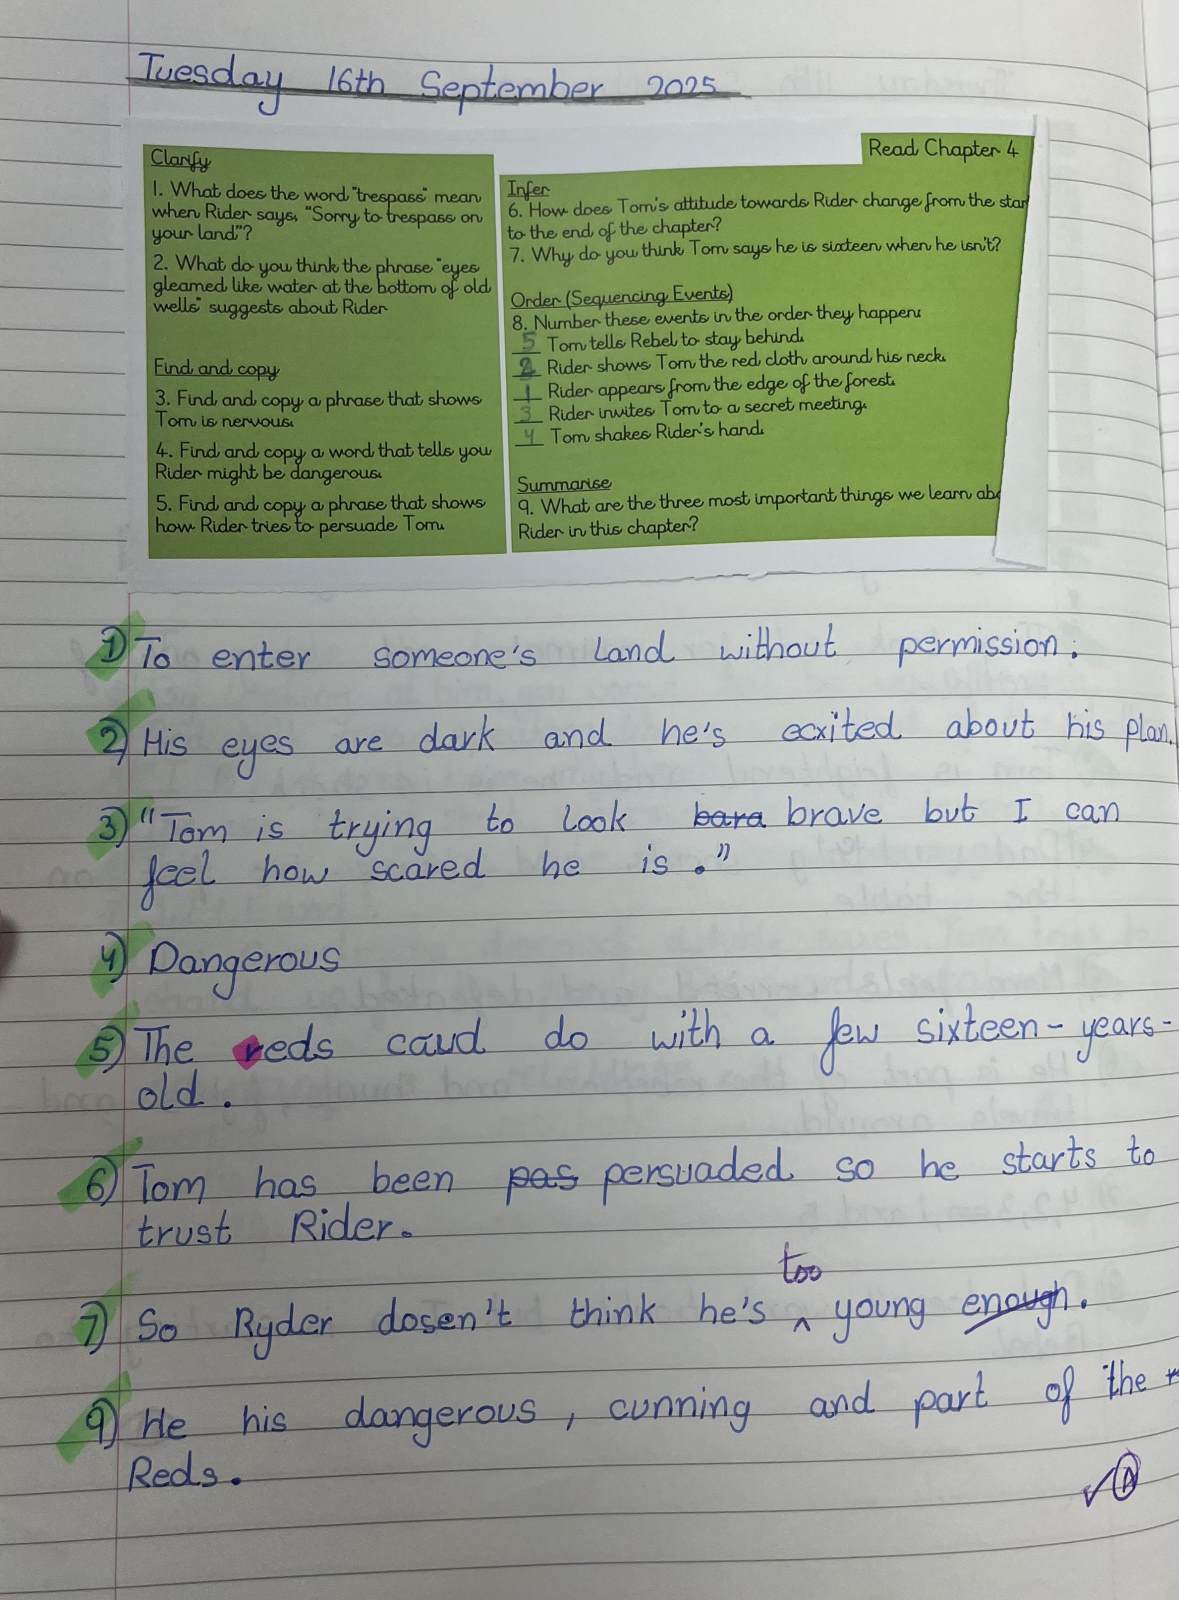 Tuesday 16th September 2025
Clarify
1. What does the word "trespass" mean
when Rider says, "Sorry to trespass on
your land"?
2. What do you think the phrase "eyes
gleamed like water at the bottom of old
wells" suggests about Rider
Find and copy
3. Find and copy a phrase that shows
Tom is nervous.
4. Find and copy a word that tells you
Rider might be dangerous.
5. Find and copy a phrase that shows
how Rider tries to persuade Tom.
Read Chapter 4
Infer
6. How does Tom's attitude towards Rider change from the star
to the end of the chapter?
7. Why do you think Tom says he is sixteen when he isn't?
Order (Sequencing Events)
8. Number these events in the order they happen:
5 Tom tells Rebel to stay behind.
2 Rider shows Tom the red cloth around his neck.
1 Rider appears from the edge of the forest.
3 Rider invites Tom to a secret meeting.
4 Tom shakes Rider's hand.
Summarise
9. What are the three most important things we learn abo
Rider in this chapter?
1) To enter someone's land without permission.
2) His eyes are dark and he's ecxited about his plan.
3) "Tom is trying to look bara brave but I can
feel how scared he is."
4) Dangerous
5) The reds caud do with a few sixteen-years-
old.
6) Tom has been pas persuaded so he starts to
trust Rider.
too
7) So Ryder dosen't think he's ^ young enough.
9) He his dangerous, cunning and part of the
Reds.